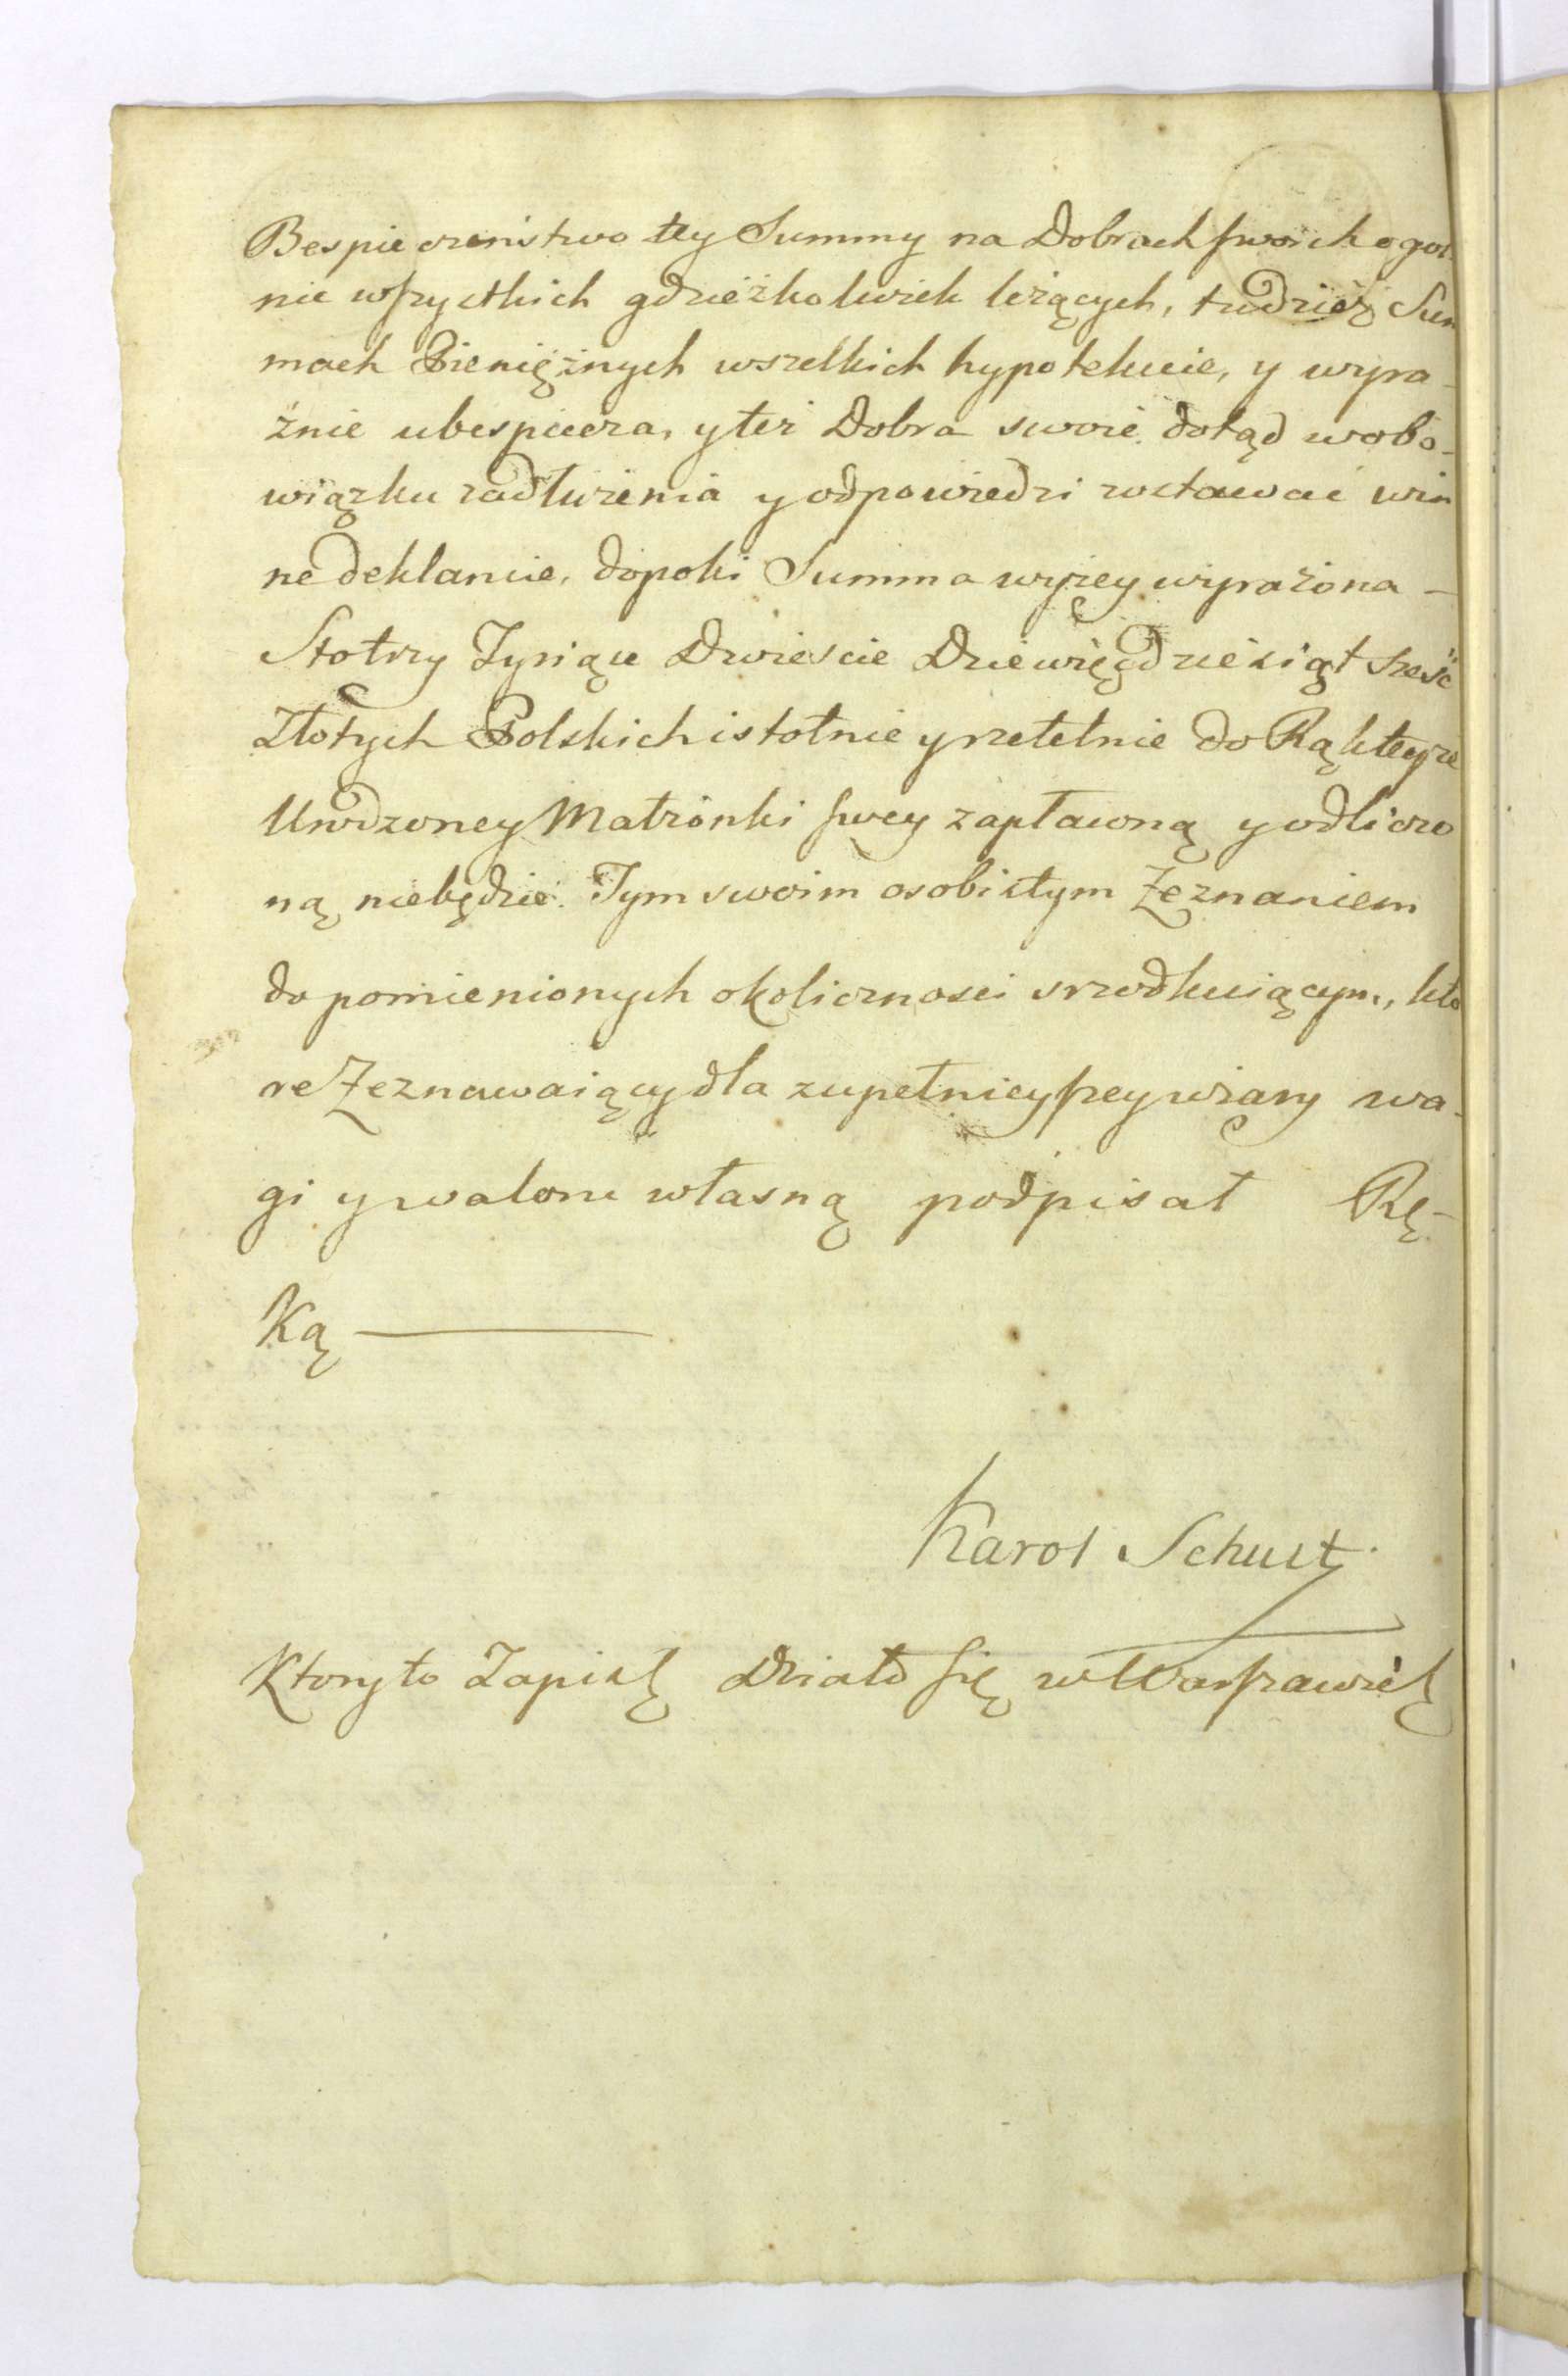 Bespieczeństwo tey Summy na Dobrach swoich ogol
nie wszystkich gdzieżkolwiek leżących, tudzież Sum
mach Pieniężnych wszelkich hypotekuie, y wyra-
źnie ubespiecza, y też Dobra swoie dotąd wobo-
wiązku zadłużenia y odpowiedzi zostawać win
ne deklaruie, dopoki Summa wyżey wyrażona -
Stotrzy Tysiące Dwieście Dziewięćdziesiąt sześć
Złotych Polskich istotnie y rzetelnie do Rąk teyże
Urodzoney Małżonki swey zapłaconą y odliczo
ną niebędzie. Tym swoim osobistym Zeznaniem
do pomienionych okoliczności srzodkuiącym, kto
re Zeznawaiący dla zupełnieyszey wiary wa-
gi y waloru własną podpisał Rę-
Ką
Karol Schultz
Ktory to Zapis Działo się w Warszawie